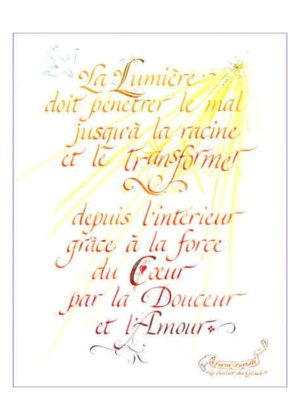 La Lumière
doit pénétrer le mal
jusqu'à la racine
et le transformer
depuis l'intérieur
grâce à la force
du Cœur
par la Douceur
et l'Amour